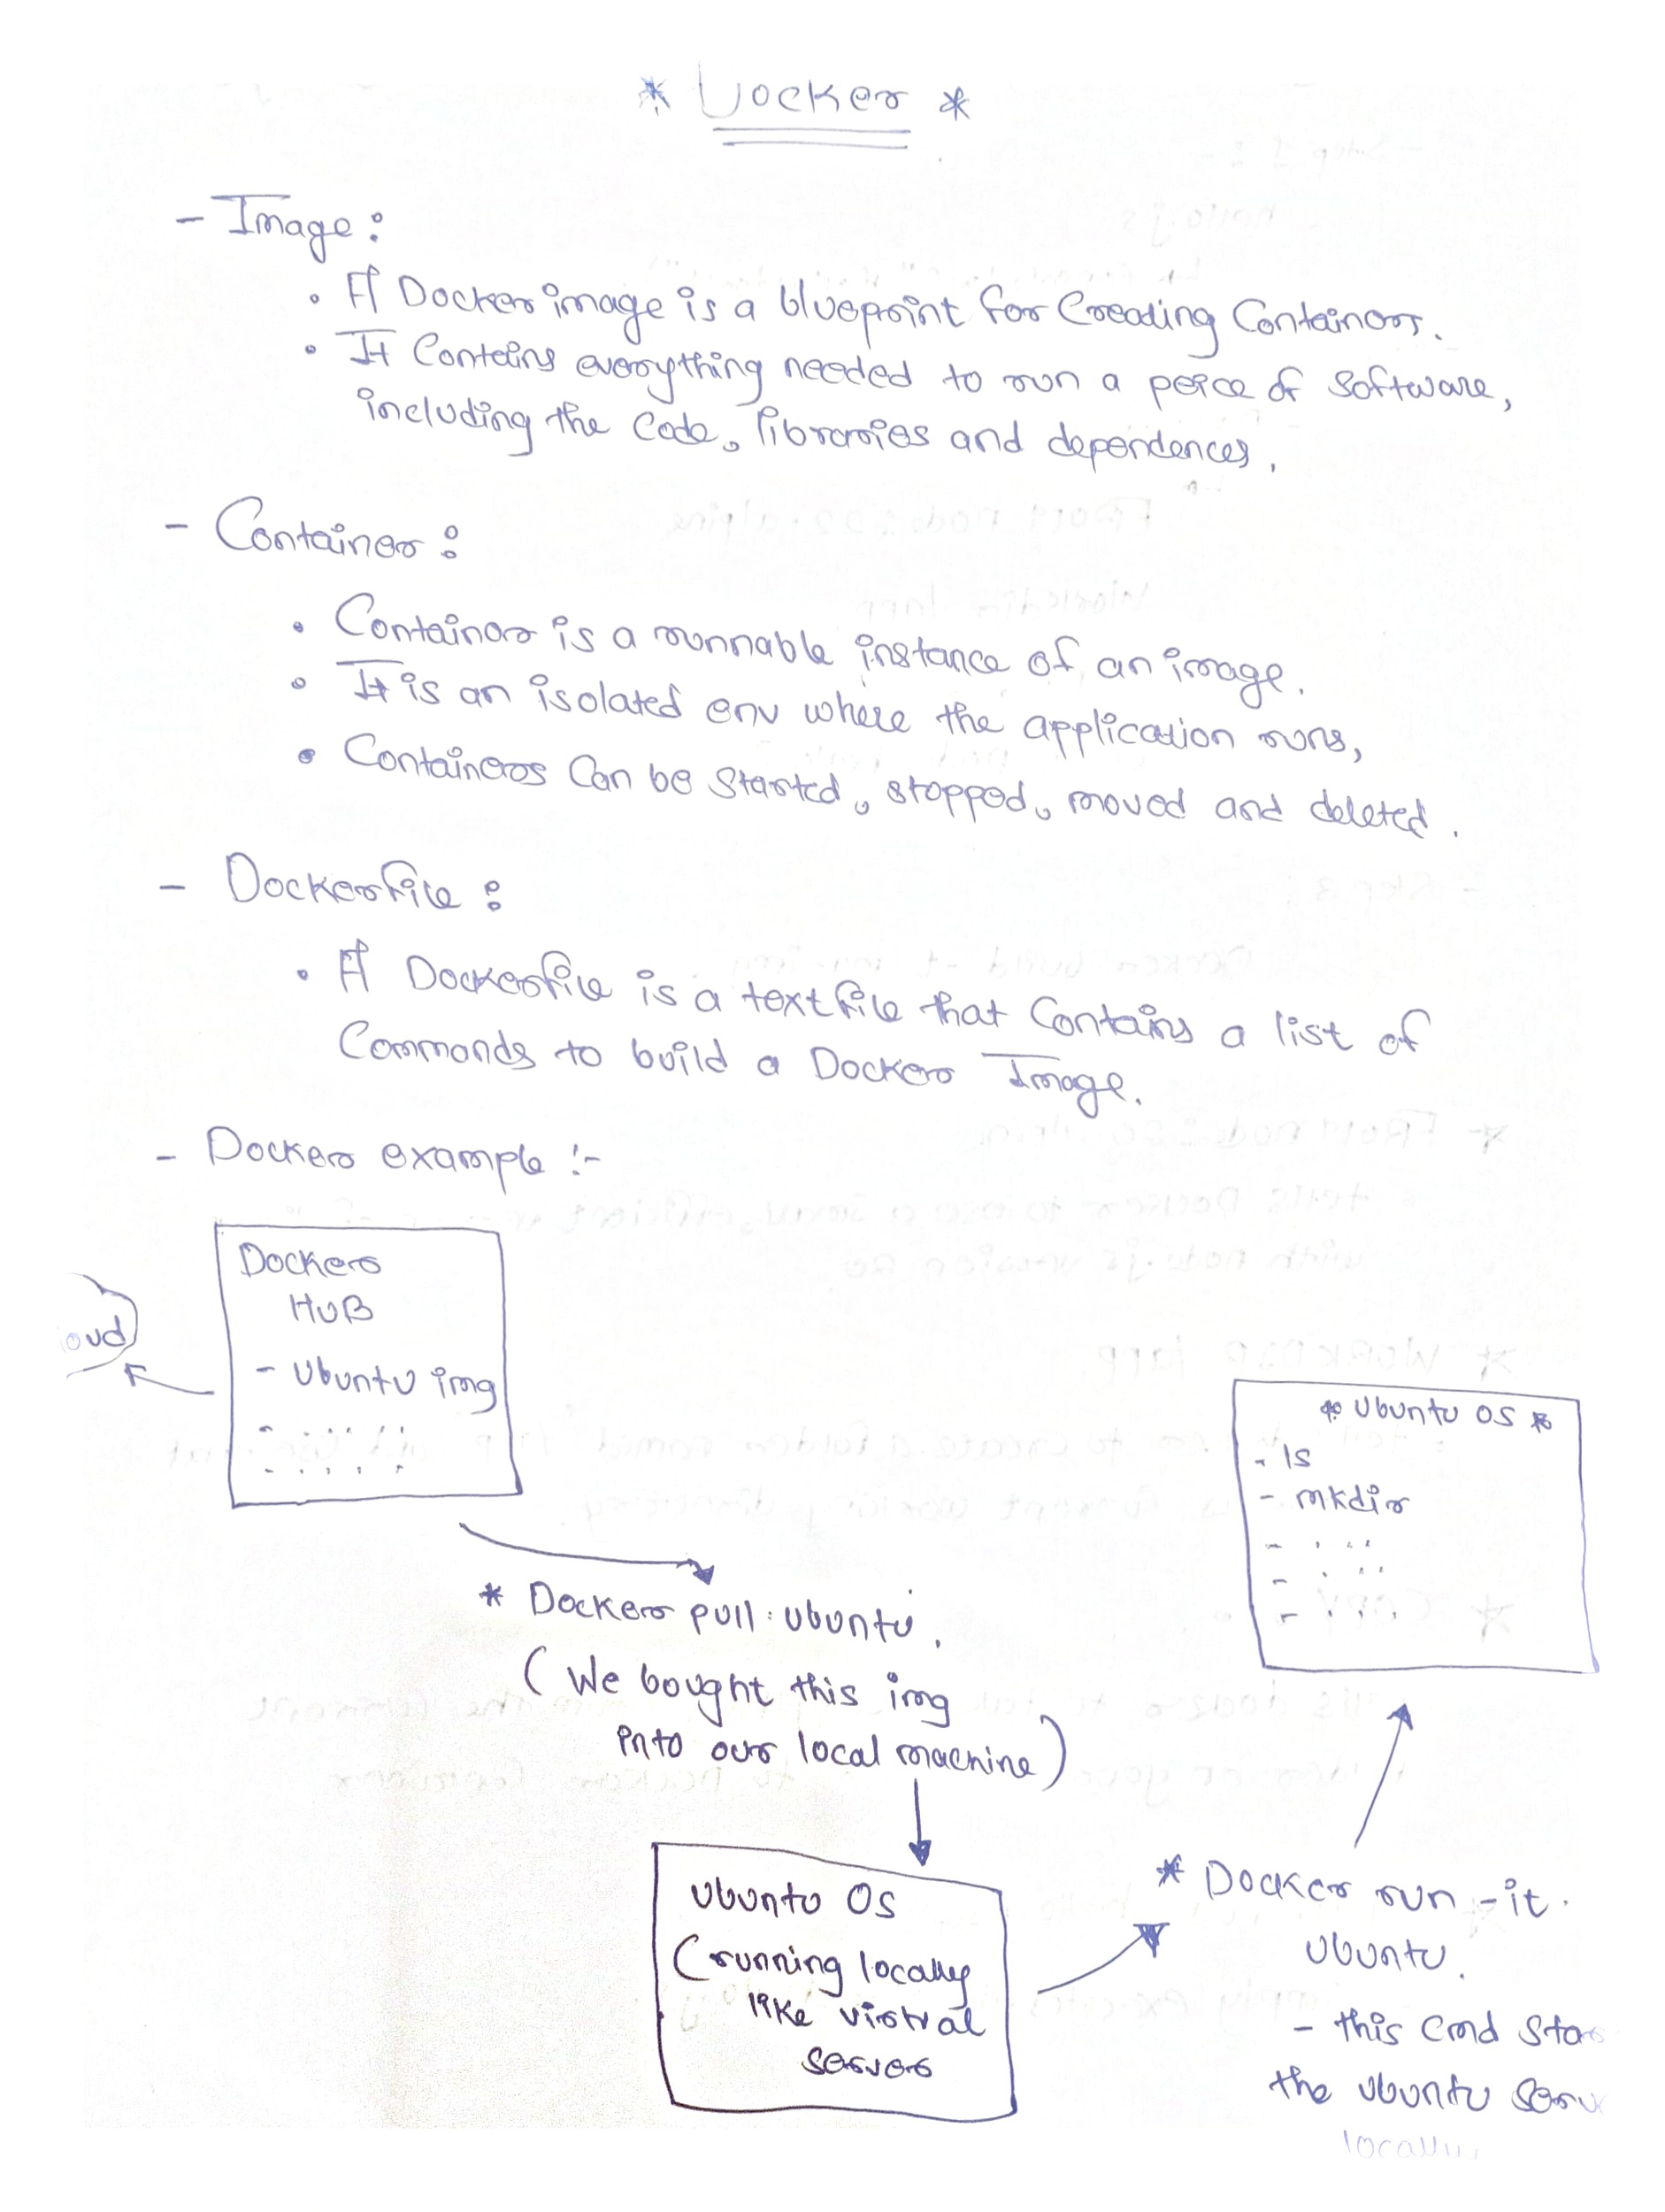 * Docker *
- Image :
• A Docker image is a blueprint for Creating Containers.
• It Contains everything needed to run a peice of Software,
including the Code, libraries and dependences.
- Container :
• Container is a runnable instance of an image.
• It is an isolated env where the application runs,
• Containers Can be Started, stopped, moved and deleted.
- Dockerfile :
• A Dockerfile is a text file that Contains a list of
Commands to build a Docker Image.
- Docker example :-
Docker
HUB
- Ubuntu img
- ......
- .....
oud
* Ubuntu OS *
- ls
- mkdir
- ....
- ....
- ....
* Docker pull ubuntu.
( We bought this img
into our local machine )
Ubuntu OS
( running locally
like virtual
server
* Docker run -it
Ubuntu.
- this cmd star
the ubuntu serv
locally